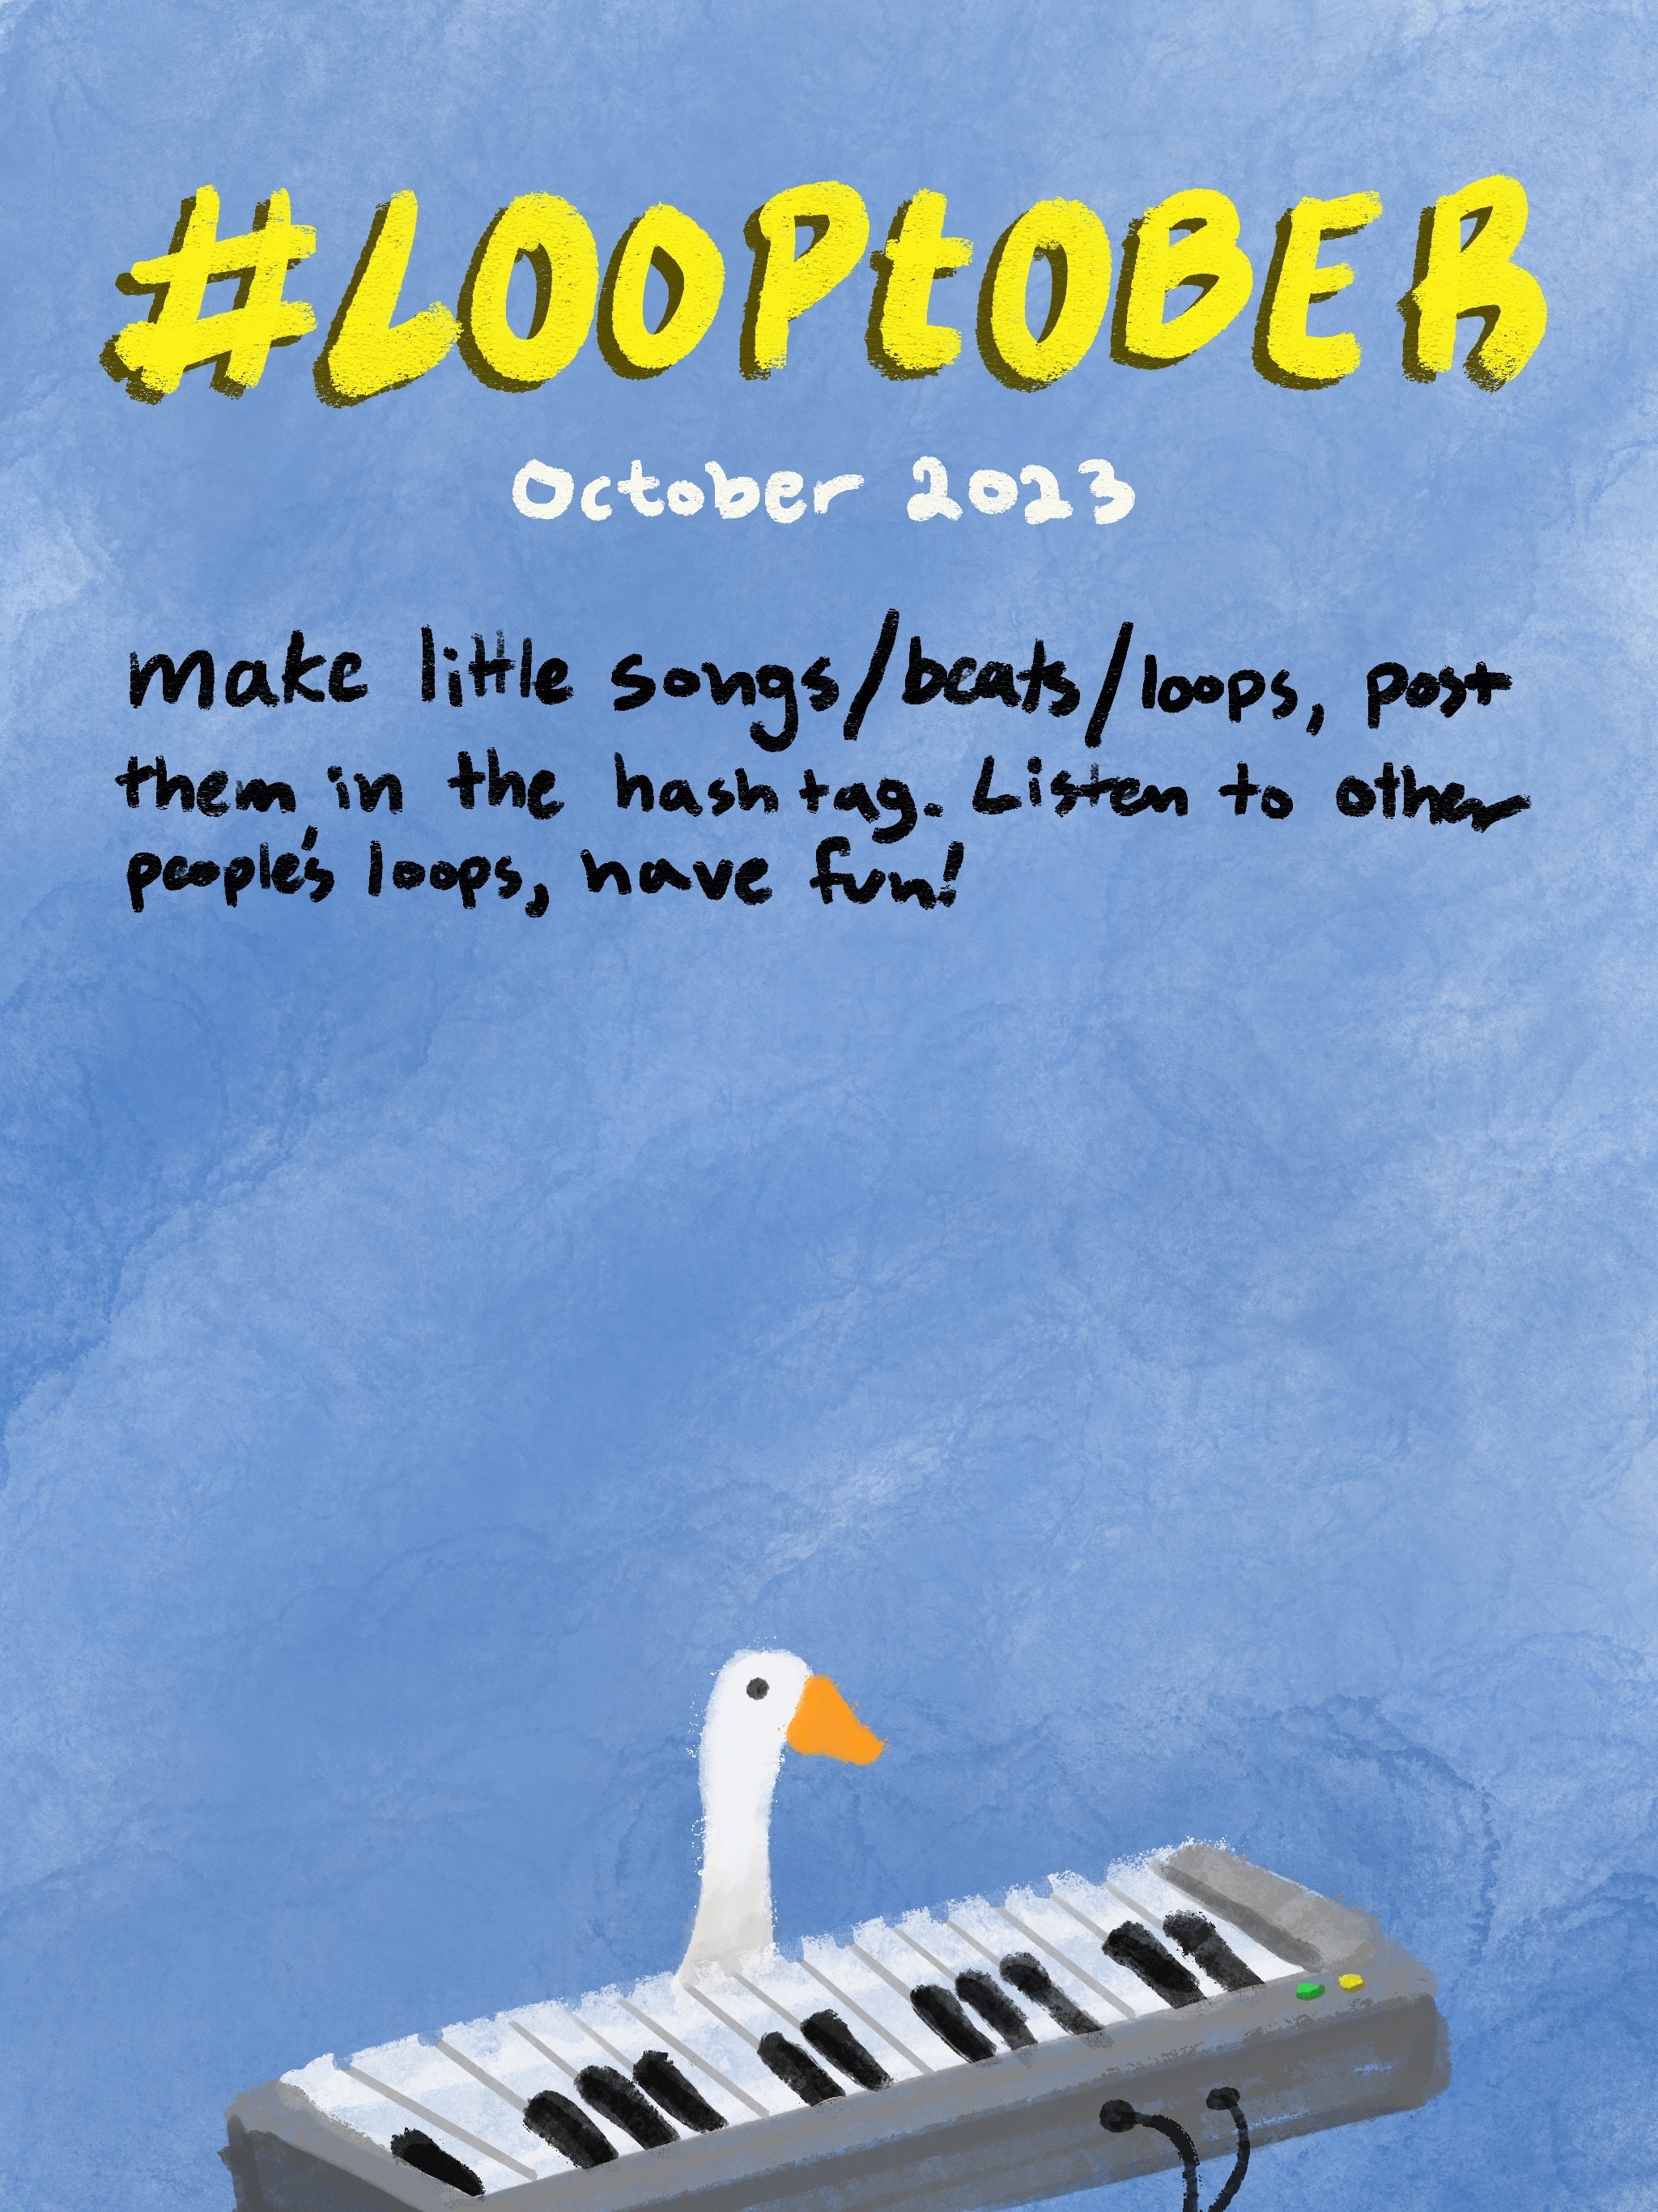 #LOOPtOBER
October 2023
make little songs/beats/loops, post
them in the hashtag. Listen to other
people's loops, have fun!